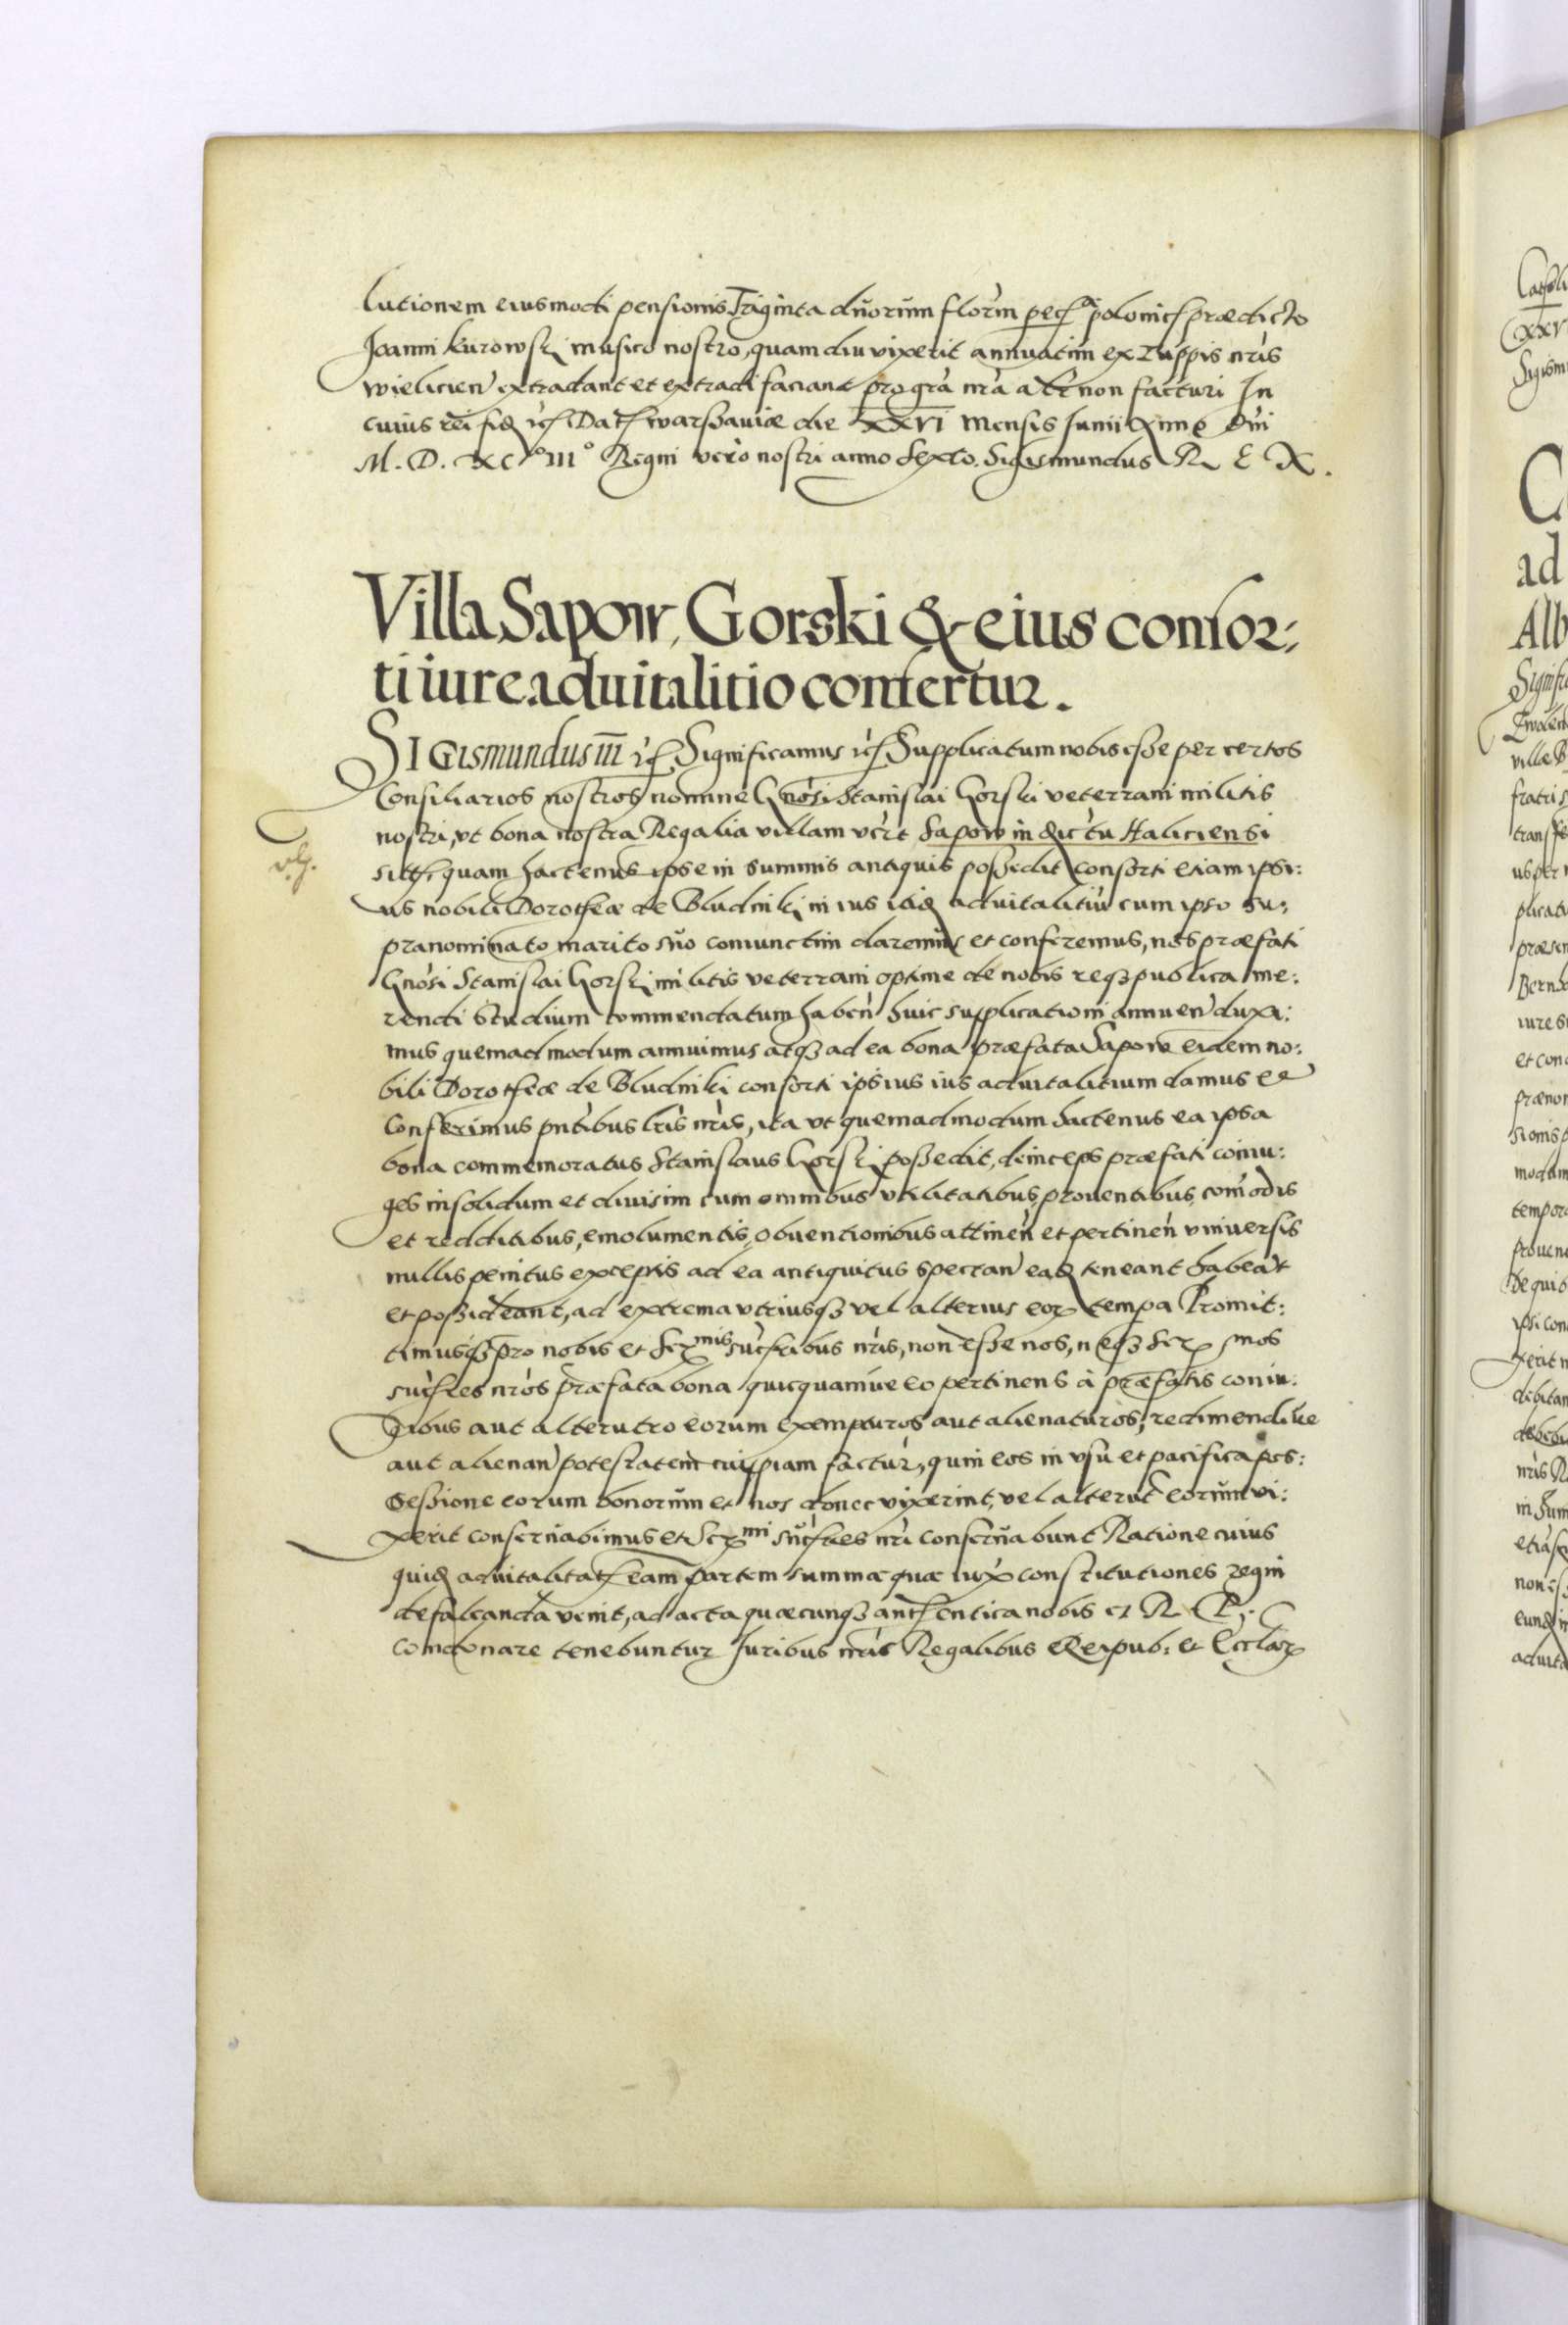 lutionem eiusmodi pensionis Triginta duorum florin pecƺ polonicƺ prædicto
Joanni Kurowski musico nostro, quamdiu vixerit annuatim ex Zuppis nris
wielicien extradant et extradi faciant pro gra nra alr non facturi In
cuius rei fid ꝛcƺ Datƺ warssaviæ die XXVI mensis Junii Anno Dni
M. D. XCIIIº Regni vero nostri anno sexto. Sigismundus R E X.
Villa Sapow, Gorski & eius consor:
ti iure aduitalitio confertur.
SIGismundus III ꝛcƺ Significamus ꝛcƺ Supplicatum nobis esse per certos
Consiliarios nostros nomine Gnosi Stanislai Gorski veterrani militis
nostri, vt bona nostra Regalia villam vcƺt Sapow in dictu Haliciensi
sitƺ, quam hactenus ipse in summis antiquis possedit consorti etiam ipsi:
us nobili Dorotheæ de Bludniki in ius itid aduitalitiu cum ipso su:
pranominato marito suo coniunctim daremus et conferemus, nos præfati
Gnosi Stanislai Gorski militis veterrani optime de nobis reqƺ publica me:
rendi studium commendatum haben huic supplicationi annuen duxi:
mus quemadmodum annuimus atqƺ ad ea bona præfata Sapow eidem no:
bili Dorotheæ de Bludniki consorti ipsius ius aduitalitium damus et
Conferimus pntibus lris nris, ita vt quemadmodum hactenus ea ipsa
bona commemoratus Stanislaus Gorski possedit, deinceps præfati coniu:
ges insolidum et diuisim cum omnibus vtilitatibus, prouentibus, comodis
et redditibus, emolumentis, obuentionibus attinen et pertinen vniuersis
nullis penitus exceptis ad ea antiquitus spectan ead teneant habeat
et possideant, ad extrema vtriusqƺ vel alterius eoꝝ tempa Promit:
timusqƺ pro nobis et Serꝫmis sucƺribus nris, non esse nos, neqƺ Serꝫ mos
sucƺres nros præfata bona quicquamue eo pertinens à præfatis coniu:
gibus aut alterutro eorum exempturos aut alienaturos, redimendiue
aut alienan potestatem cuipiam factur, quin eos in vsu et pacifica pos:
sessione eorum bonorum et nos donec vixerint, vel alterut eorum vi:
xerit conseruabimus et Serꝫmi sucƺres nri conseruabunt Ratione cuius
quid aduitalitatƺ eam partem summæ quæ iuxƺ constitutiones regni
defalcanda venit, ad acta quæcunqƺ authentica nobis et R P.
condonare tenebuntur Juribus nris Regalibus Reipub: et Ecclaꝝ